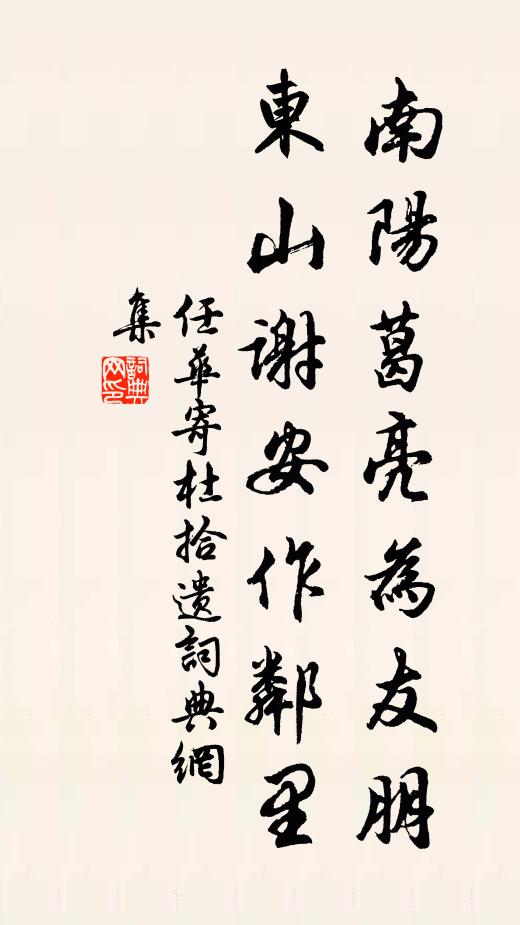 南陽葛亮為友朋
東山謝安作鄰里
任華寄杜拾遺詞典網
集
詞典
网印